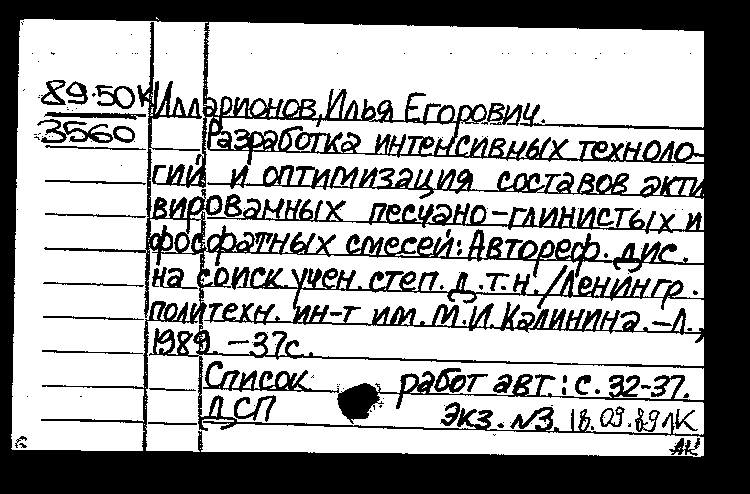 89-50К Илларионов, Илья Егорович.
3560 Разработка интенсивных техноло-
гий и оптимизация составов акти
вированных песчано-глинистых и
фосфатных смесей: Автореф. дис.
на соиск. учен. степ. д.т.н. / Ленингр.
политехн. ин-т им. М.И. Калинина. - Л.,
1989. - 37с.
Список работ авт.: с. 32-37.
ДСП Экз. №3. 18.09.89 ЛК
АК